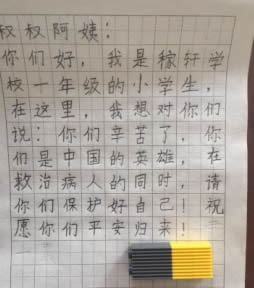 叔叔阿姨：
你们好，我是稼轩学
校一年级的小学生，
在这里，我想对你们
说：你们辛苦了，你
们是中国的英雄，在
救治病人的同时，请
你们保护好自己！祝
愿你们平安归来！